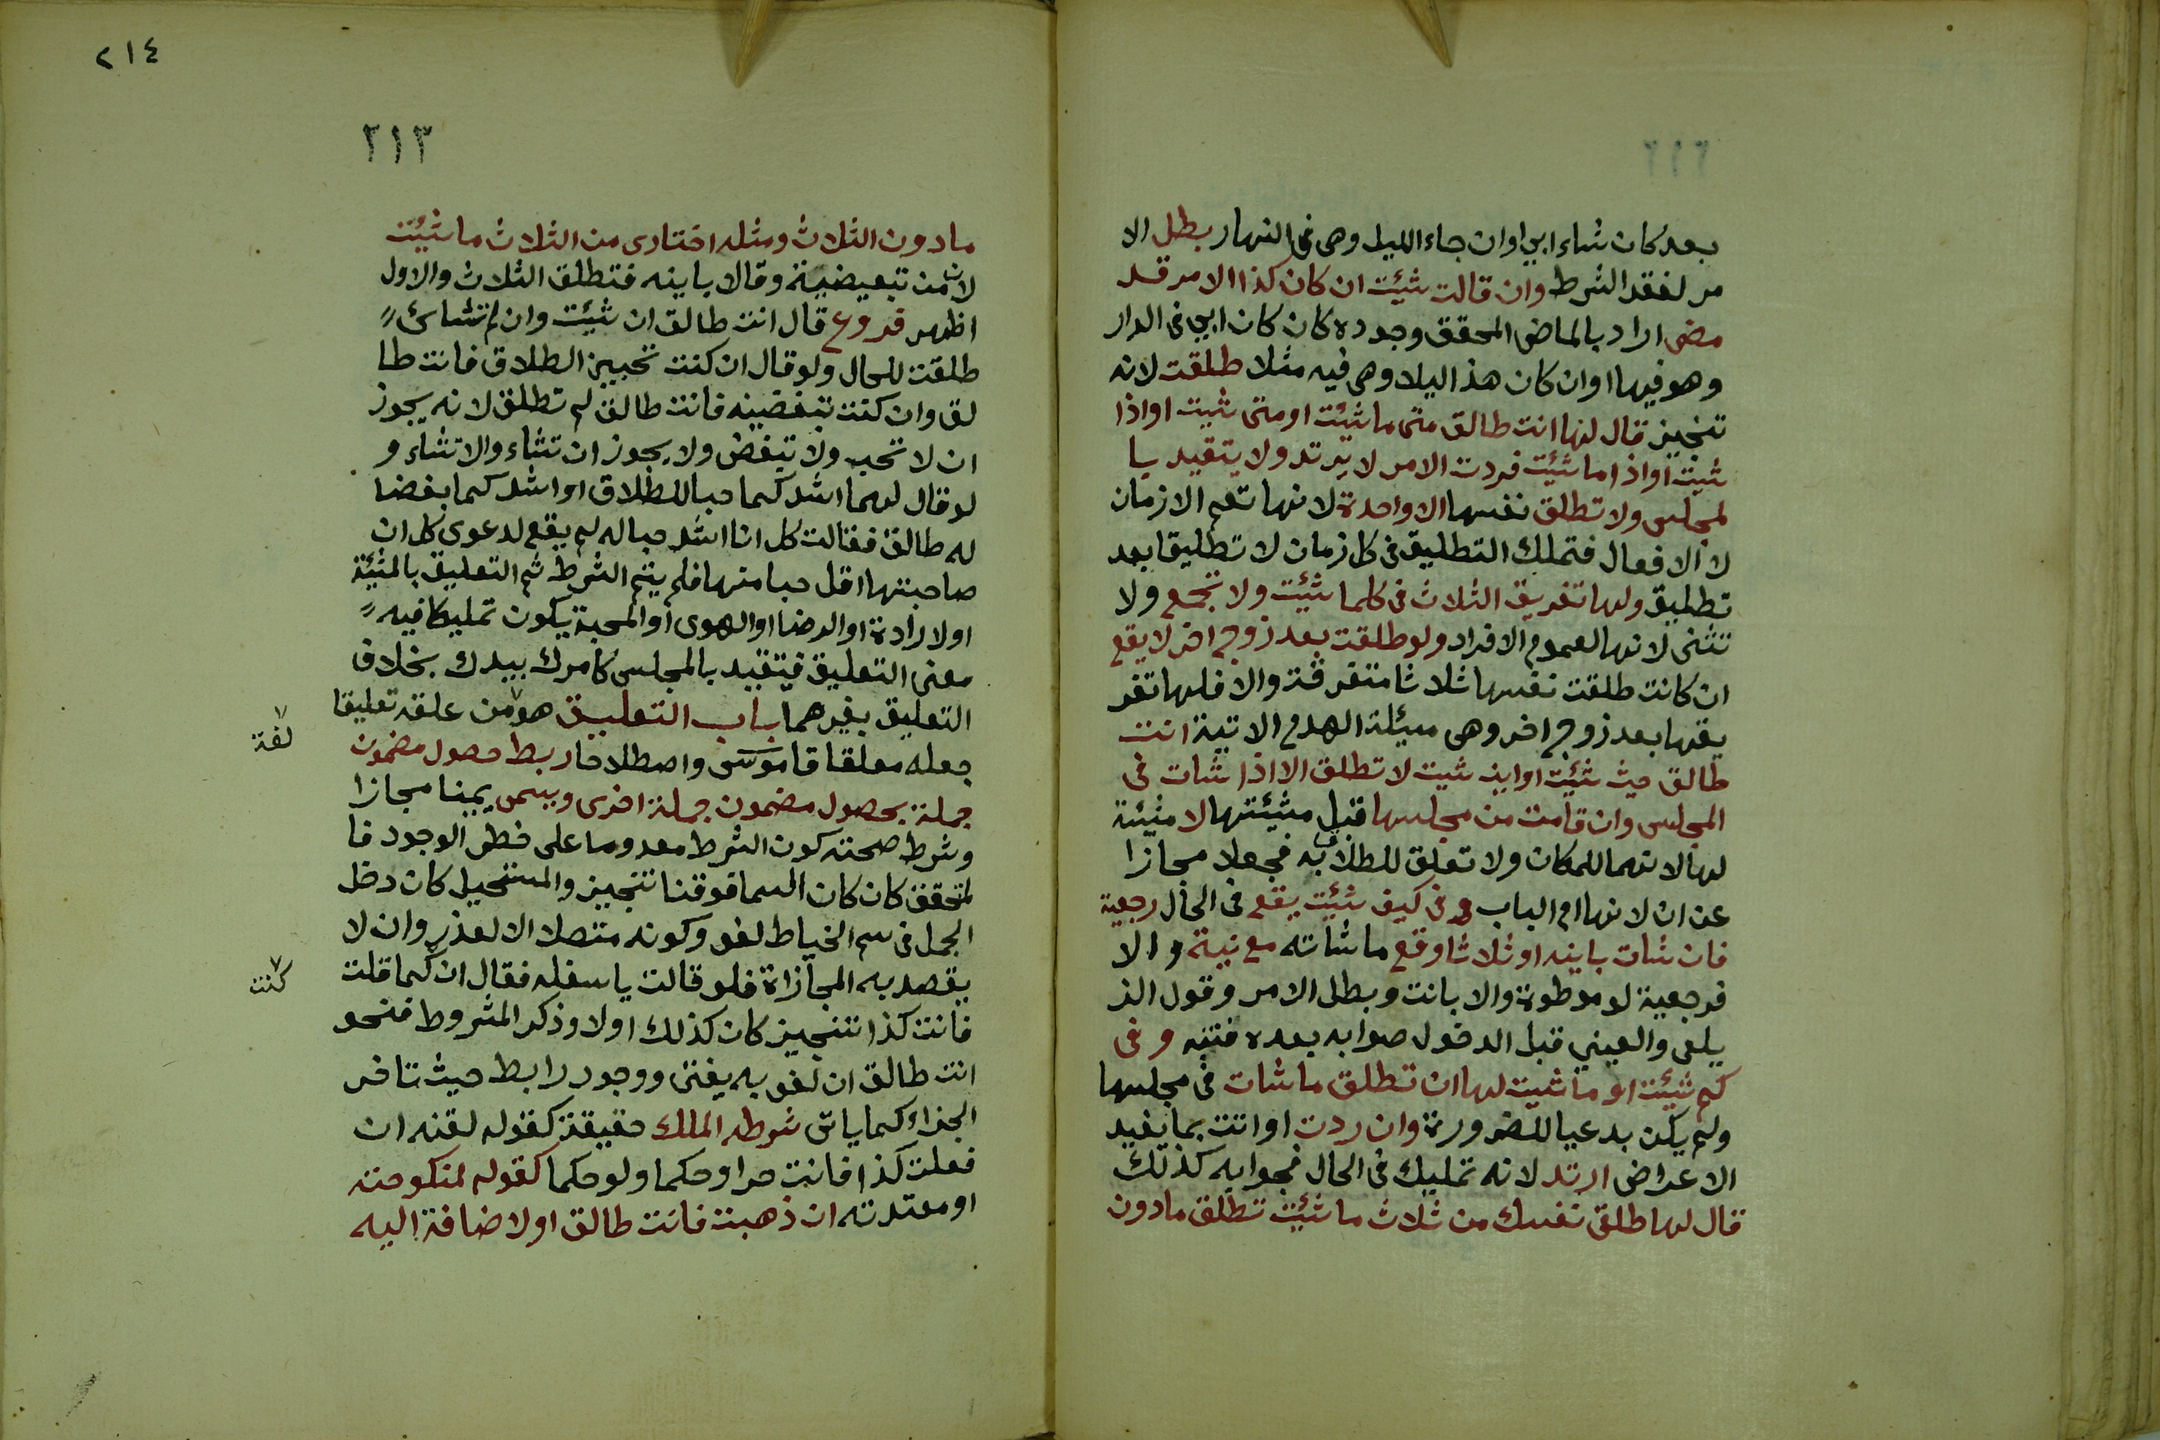 بعد كان شاء ابي او ان جاء الليل وهى فى النهار بطل الا
مر لفقد الشرط وان قالت شيئت ان كان كذا الامر قد
مضى اراد بالماضى المحقق وجوده كان كان ابي فى الدار
وهو فيها او ان كان هذا ليلا وهى فيه مثلا طلقت لانه
تنجيز قال لها انت طالق متى ما شيئت او متى شيت او اذا
شيت او اذا ما شئيت فردت الامر لا يرتد ولا يتقيد با
لمجلس ولا تطلق نفسها الا واحدة لانها تعم الازمان
لا الافعال فتملك التطليق فى كل زمان لا تطليقا بعد
تطليق ولها تفريق الثلاث فى كلما شئيت ولا تجمع ولا
تثنى لانها لعموم الافراد ولو طلقت بعد زوج اخر لا يقع
ان كانت طلقت نفسها ثلاثا متفرقة والا فلها تفر
يقها بعد زوج اخر وهى مسئلة الهدم الاتية انت
طالق حيث شئيت او اين شيت لا تطلق الا اذا شات فى
المجلس وان قامت من مجلسها قبل مشيئتها لا مشيئة
لها لانهما للمكان ولا تعلق للطلاق به فجعلا مجازا
عن ان لانها ام الباب وفى كيف شيئت يقع فى الحال رجعية
فان شات باينه او ثلاثا وقع ما شاته مع نية والا
فرجعية لو موطوة والا بانت وبطل الامر وقول الز
يلعى والعيني قبل الدخول صوابه بعده فتنبه وفى
كم شيئت او ما شيت لها ان تطلق ما شات فى مجلسها
ولم يكن بدعيا للضرورة وان ردت او اتت بما يفيد
الاعراض ارتد لانه تمليك فى الحال فجوابه كذلك
قال لها طلقى نفسك من ثلاث ما شيئت تطلق مادون
٢١٤
٢١٣
مادون الثلاث ومثله اختارى من الثلاث ما شيئت
لان من تبعيضية وقالا باينه فتطلق الثلاث والاول
اظهر فروع قال انت طالق ان شيئت وان لم تشائ
طلقت للحال ولو قال ان كنت تحبين الطلاق فانت طا
لق وان كنت تبغضينه فانت طالق لم تطلق لانه يجوز
ان لا تحب ولا تبغض ولا يجوز ان تشاء والا تشاء و
لو قال لهما اشدكما حبا للطلاق او اشدكما بغضا
له طالق فقالت كل انا اشد حبا له لم يقع لدعوى كل ان
صاحبتها اقل حبا منها فلم يتم الشرط ثم التعليق بالمشيئة
او الارادة او الرضا او الهوى او المحبة يكون تمليكا فيه
معنى التعليق فيتقيد بالمجلس كامرك بيدك بخلاف
التعليق بغيرهما باب التعليق هو من علقه تعليقا
لغة
جعله معلقا قاموسى واصطلاحا ربط حصول مضمون
جملة بحصول مضمون جملة اخرى ويسمى يمينا مجازا
وشرط صحته كون الشرط معدوما على خطر الوجود فا
لمحقق كان كان السما فوقنا تنجيز والمستحيل كان دخل
الجمل فى سم الخياط لغو وكونه متصلا الا لعذر وان لا
يقصد به المجازاة فلو قالت يا سفله فقال ان كما قلت
كنت
فانت كذا تنجيز كان كذلك اولا وذكر المشروط فنحو
انت طالق ان لغو به يفتى ووجود رابط حيث تاخر
الجزاء كما ياتى شرطه الملك حقيقة كقوله لقنه ان
فعلت كذا فانت حر او حكما ولو حكما كقوله لمنكوحته
او معتدته ان ذهبت فانت طالق او الاضافة اليه